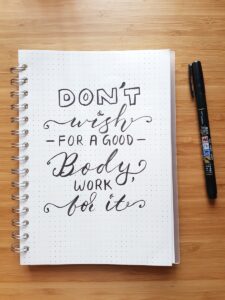 DON'T
wish
- FOR A GOOD -
Body,
WORK
for it